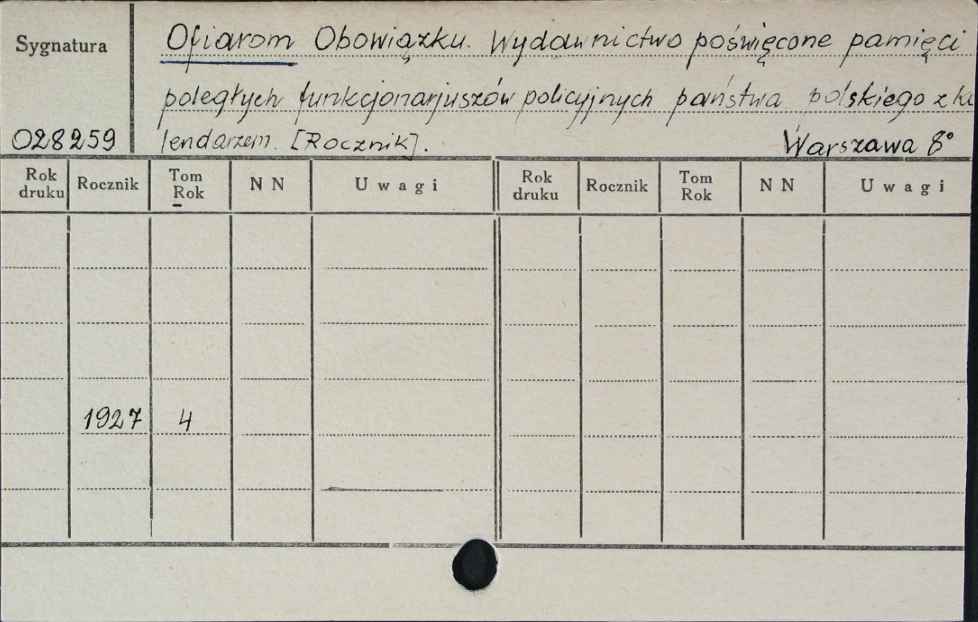 Sygnatura
Ofiarom Obowiązku. Wydawnictwo poświęcone pamięci
poległych funkcjonarjuszów policyjnych państwa polskiego z ka
028259 lendarzem. [Rocznik]. Warszawa 8°
Rok druku Rocznik Tom Rok NN Uwagi Rok druku Rocznik Tom Rok NN Uwagi
1927 4